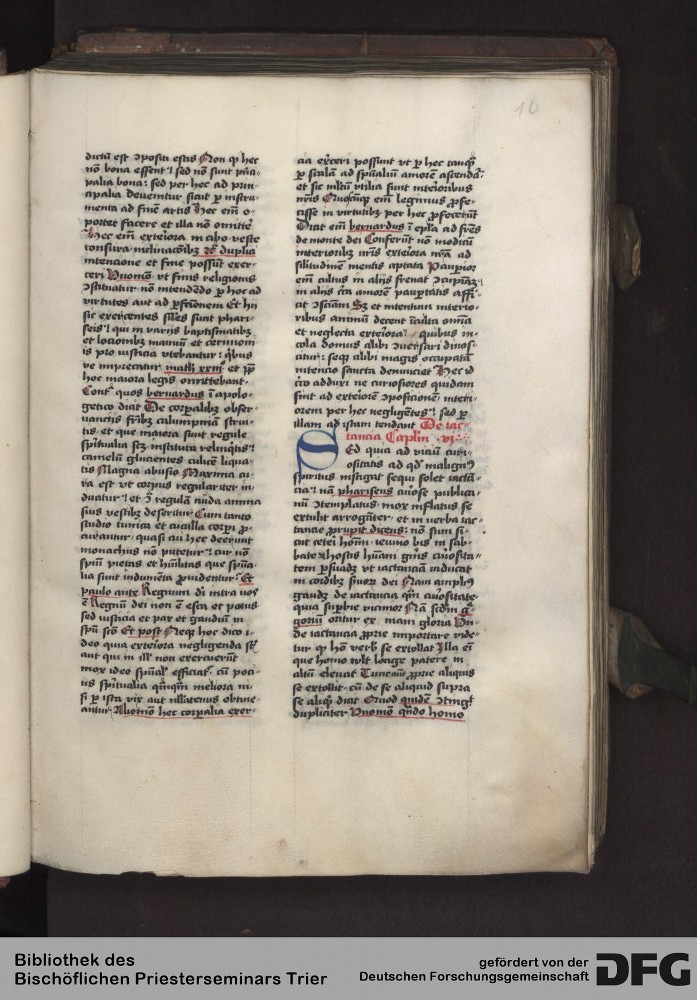 10
dictū est ꝯpositi estis Non qꝫ hec
nō bona essent ⁊ sed nō sunt pͥnci-
palia bona: sed per hec ad prin
cipalia deuenitur sicut ꝑ instru
menta ad finē artis Hec em̄ o-
portet facere et illa nō omitte͛
Hec em̄ exteriora in cibo veste
tonsura inclinacōibꝫ duplici
intencione et fine possūt exer-
ceri Vnomō vt finis religionis
ꝯstituatur nō intendēdo ꝑ hoc ad
virtutes aut ad ꝑfcionem Et hij
sic exercentes siles sunt phari-
seis ⁊ qui in varijs baptismatibꝫ
et locionibꝫ manuū et cerimoni
is pro iusticia vtebantur: qͥbus
ve imprecatur math xxiij et ꝓpt
hoc maiora legis omittebant
Contͣ quos bernardus ī apolo-
getico dicit De corꝑalibꝫ obser
uancijs frībꝫ calumpniā strui
tis et que maiora sunt regule
spūalia scꝫ instituta relinqͥtis ⁊
camelū glucientes culicē liqua
tis Magna abusio Maxima cu
ra est vt corpus regulariter in-
duatur ⁊ et ꝯͣ regulā nuda anima
suis vestibꝫ deseritur Cum tanto
studio tunica et cuculla corꝑi ꝓ
curantur quasi cui hec deerunt
monachus nō putetur ⁊ cur nō
spūi pietas et hūilitas que spūa-
lia sunt indumēta ꝓuidentur: Et
paulo ante Regnum di intra vos
ē Regnū dei non ē esca et potus
sed iusticia et pax et gaudiū in
spū scō Et post Neqꝫ hoc dico i-
deo quia exteriora negligenda sīt
aut qui in ill' non exercuerūt
mox ideo spūal' efficiat͛. cū poci-
us spūalia qūqm meliora ni-
si ꝑ ista vix aut nllatenus obtine
antur Aliomō hec corꝑalia exer-
cia exerceri possunt vt ꝑ hec tanqꝫ
ꝑ scalā ad spūaliū amorē ascendat͛
et sic mltū vtilia sunt interioribus
nrīs Quoscūqꝫ em̄ legimus ꝓfe-
cisse in virtutibꝫ per hec ꝓfecerūt
Dicit em̄ bernardus ī epl'a ad frēs
de monte dei Conferūt nō modicū
interioribꝫ nrīs exteriora nrā ad
silitudinē mentis aptata Pauꝑior
em̄ cultus in alijs frenat ꝯcupiscēꝫ
in alijs eciā amorē pauꝑtatis affi-
cit ꝯsciam Sꝫ et intentum interio-
ribus animū decent īculta om̄ia
et neglecta exteriora ⁊ quibus in-
cola domus alibi ꝯuersari dinos-
citur: seqꝫ alibi magis occupatā
intencio sancta denunciet Hec id
cͥco adduxi ne curiosiores quidam
sint ad exteriorē ꝯposicionē interi-
orem per hec negligētes ⁊ sed ꝑ
illam ad istam tendant De iac-
tancia Caplm̄ · vj ·
SEd quia ad viciū curi-
ositatis ad qd' malignꝰ
spiritus instigat sequi solet iactā-
cia ⁊ nā phariseus curiose publica-
nū ꝯtemplatus mox inflatus se
extulit arroganter: et in verba iac-
tancie ꝓrupit dicens: nō sum si-
cut ceteri hoīm ieiuno bis in sab-
bate ⁊ hostis hūani gn̄is curiosita-
tem ꝑsuadꝫ vt iactanciā inducat
in cordibꝫ suorꝫ dei Nam amplꝰ
gaudꝫ de iactancia qm̄ curiositate
quia suꝑbie vicinior Nā scdm̄ g͛-
goriū oritur ex inani gloria Vn̄-
de iactancia ꝓprie importare vide-
tur qꝫ hō verb' se extollat Illa em̄
que homo vult longe patere in
altū eleuat Tunc aūt ꝓprie aliquis
se extollit cū de se aliquid supra
se aliqͥ dicit Quod quidē ꝯtingit
dupliciter Vnomō qn̄do homo
Bibliothek des
Bischöflichen Priesterseminars Trier
gefördert von der
Deutschen Forschungsgemeinschaft
DFG